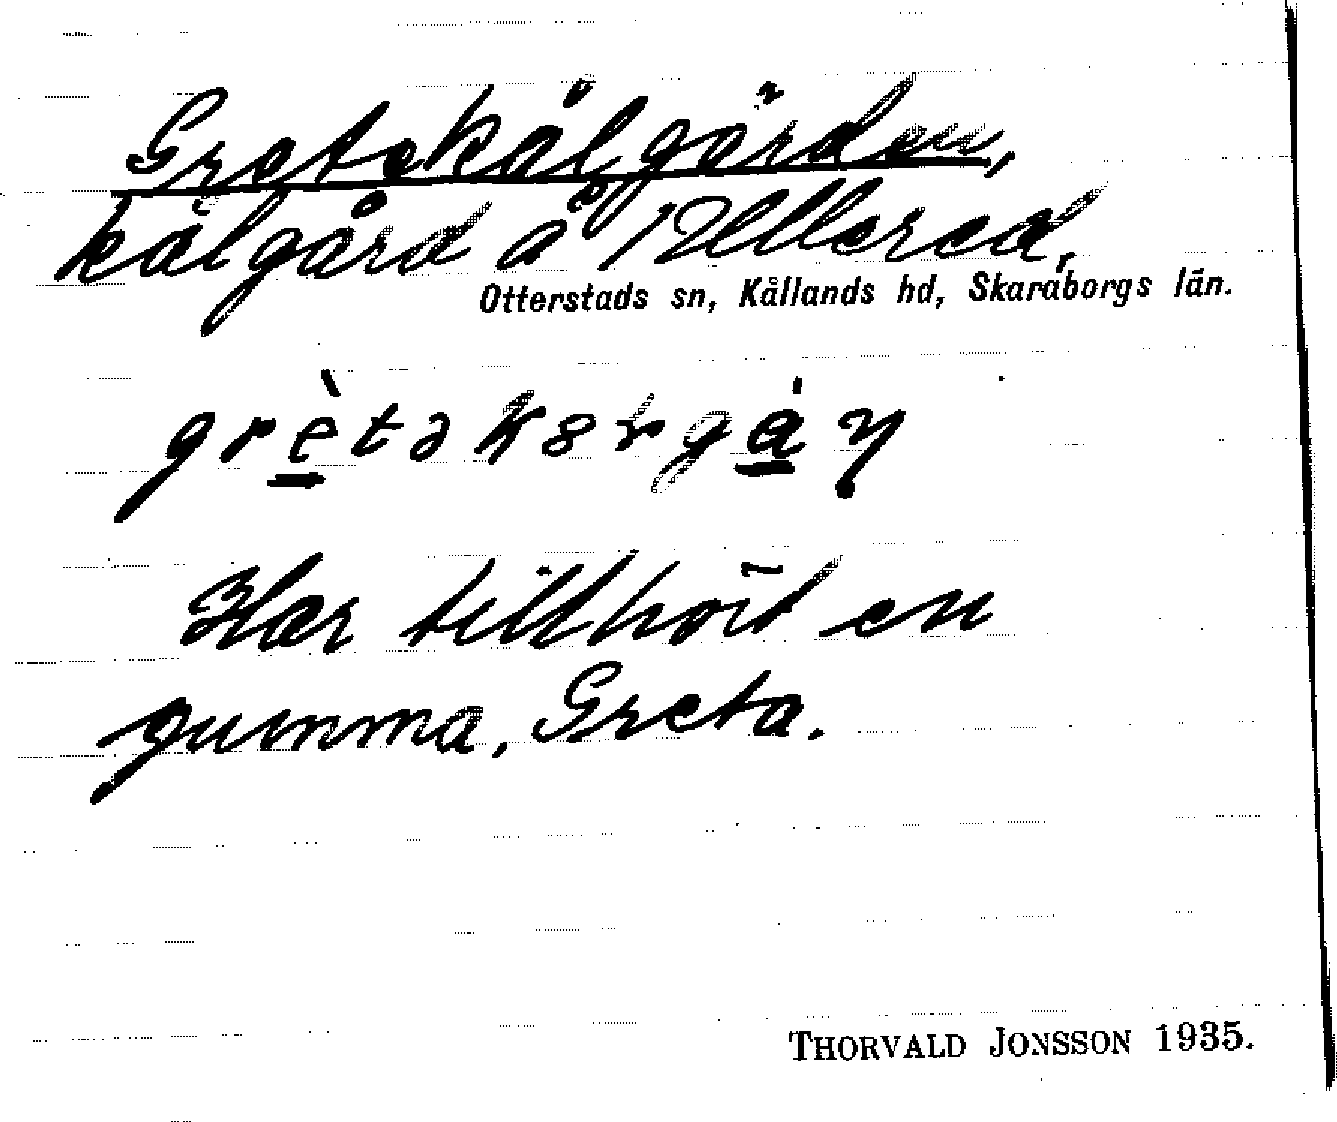 Gretekålgården,
kålgård å 12 Ullered,
Otterstads sn, Kållands hd, Skaraborgs län.
Har tillhört en
gumma, Greta.
THORVALD JONSSON 1935.